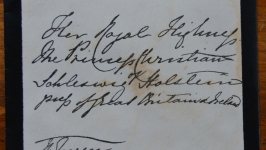 Her Royal Highness
the Princess Christian
Schleswig Holstein
of Great Britain & Ireland